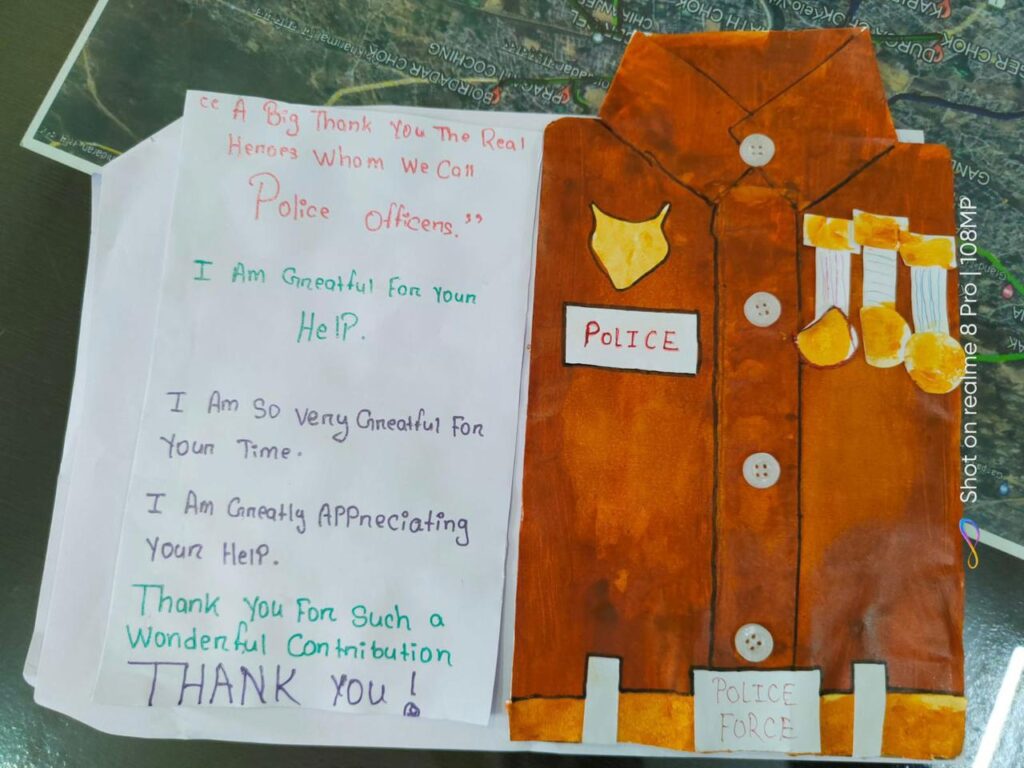 “ A Big Thank You The Real
Heroes Whom We Call
Police Officers.”
I Am Greatful For Your
Help.
I Am So Very Greatful For
Your Time.
I Am Greatly Appreciating
Your Help.
Thank You For Such a
Wonderful Contribution
THANK You !
POLICE
POLICE
FORCE
BOIRDADAR CHOK
COCHING
Shot on realme 8 Pro | 108MP